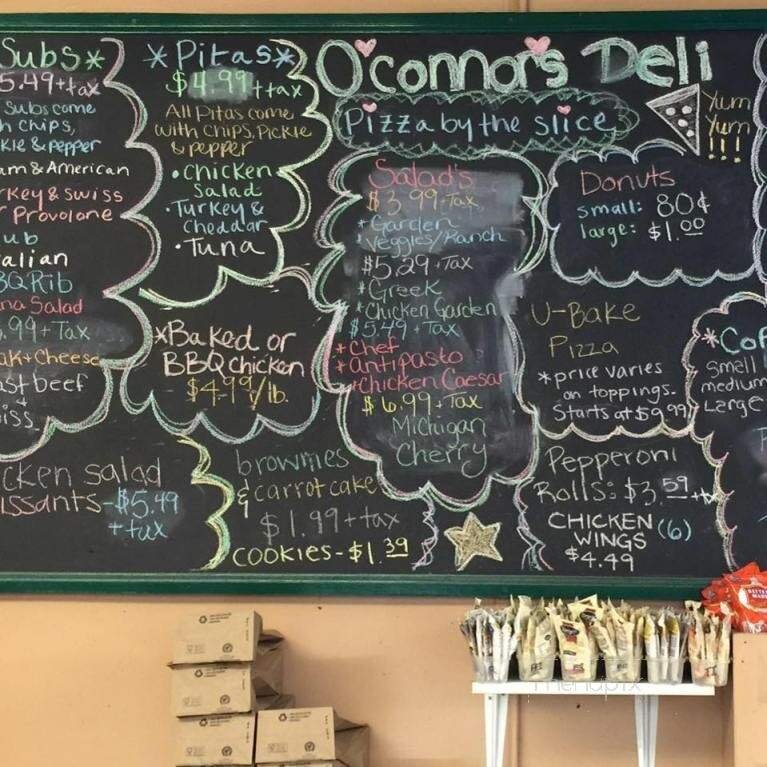 Subs*
5.49+tax
Subs come
h chips,
kle & pepper
am & American
rkey & Swiss
r Provolone
ub
alian
BQ Rib
na Salad
.99+Tax
ak+Cheese
st beef
iss
cken salad
issants-$5.49
+tax
*Pitas*
$4.99+tax
All Pitas come
with chips, Pickle
& pepper
•Chicken
Salad
•Turkey &
Cheddar
•Tuna
*Baked or
BBQ chicken
$4.99/lb.
brownies
& carrot cake
$1.99+tax
COOKIES-$1.39
O'connors Deli
Pizza by the slice
Yum
Yum
!!!
Salad's
$3.99+Tax
*Garden
Veggies/Ranch
$5.29+Tax
*Greek
*Chicken Garden
$5.49+Tax
*Chef
*Antipasto
*Chicken Caesar
$6.99+Tax
Michigan
Cherry
Donuts
small: 80¢
large: $1.00
U-Bake
Pizza
*price varies
on toppings.
Starts at $9.99
Pepperoni
Rolls: $3.59+tx
CHICKEN (6)
WINGS
$4.49
*Cof
Small
medium
Large